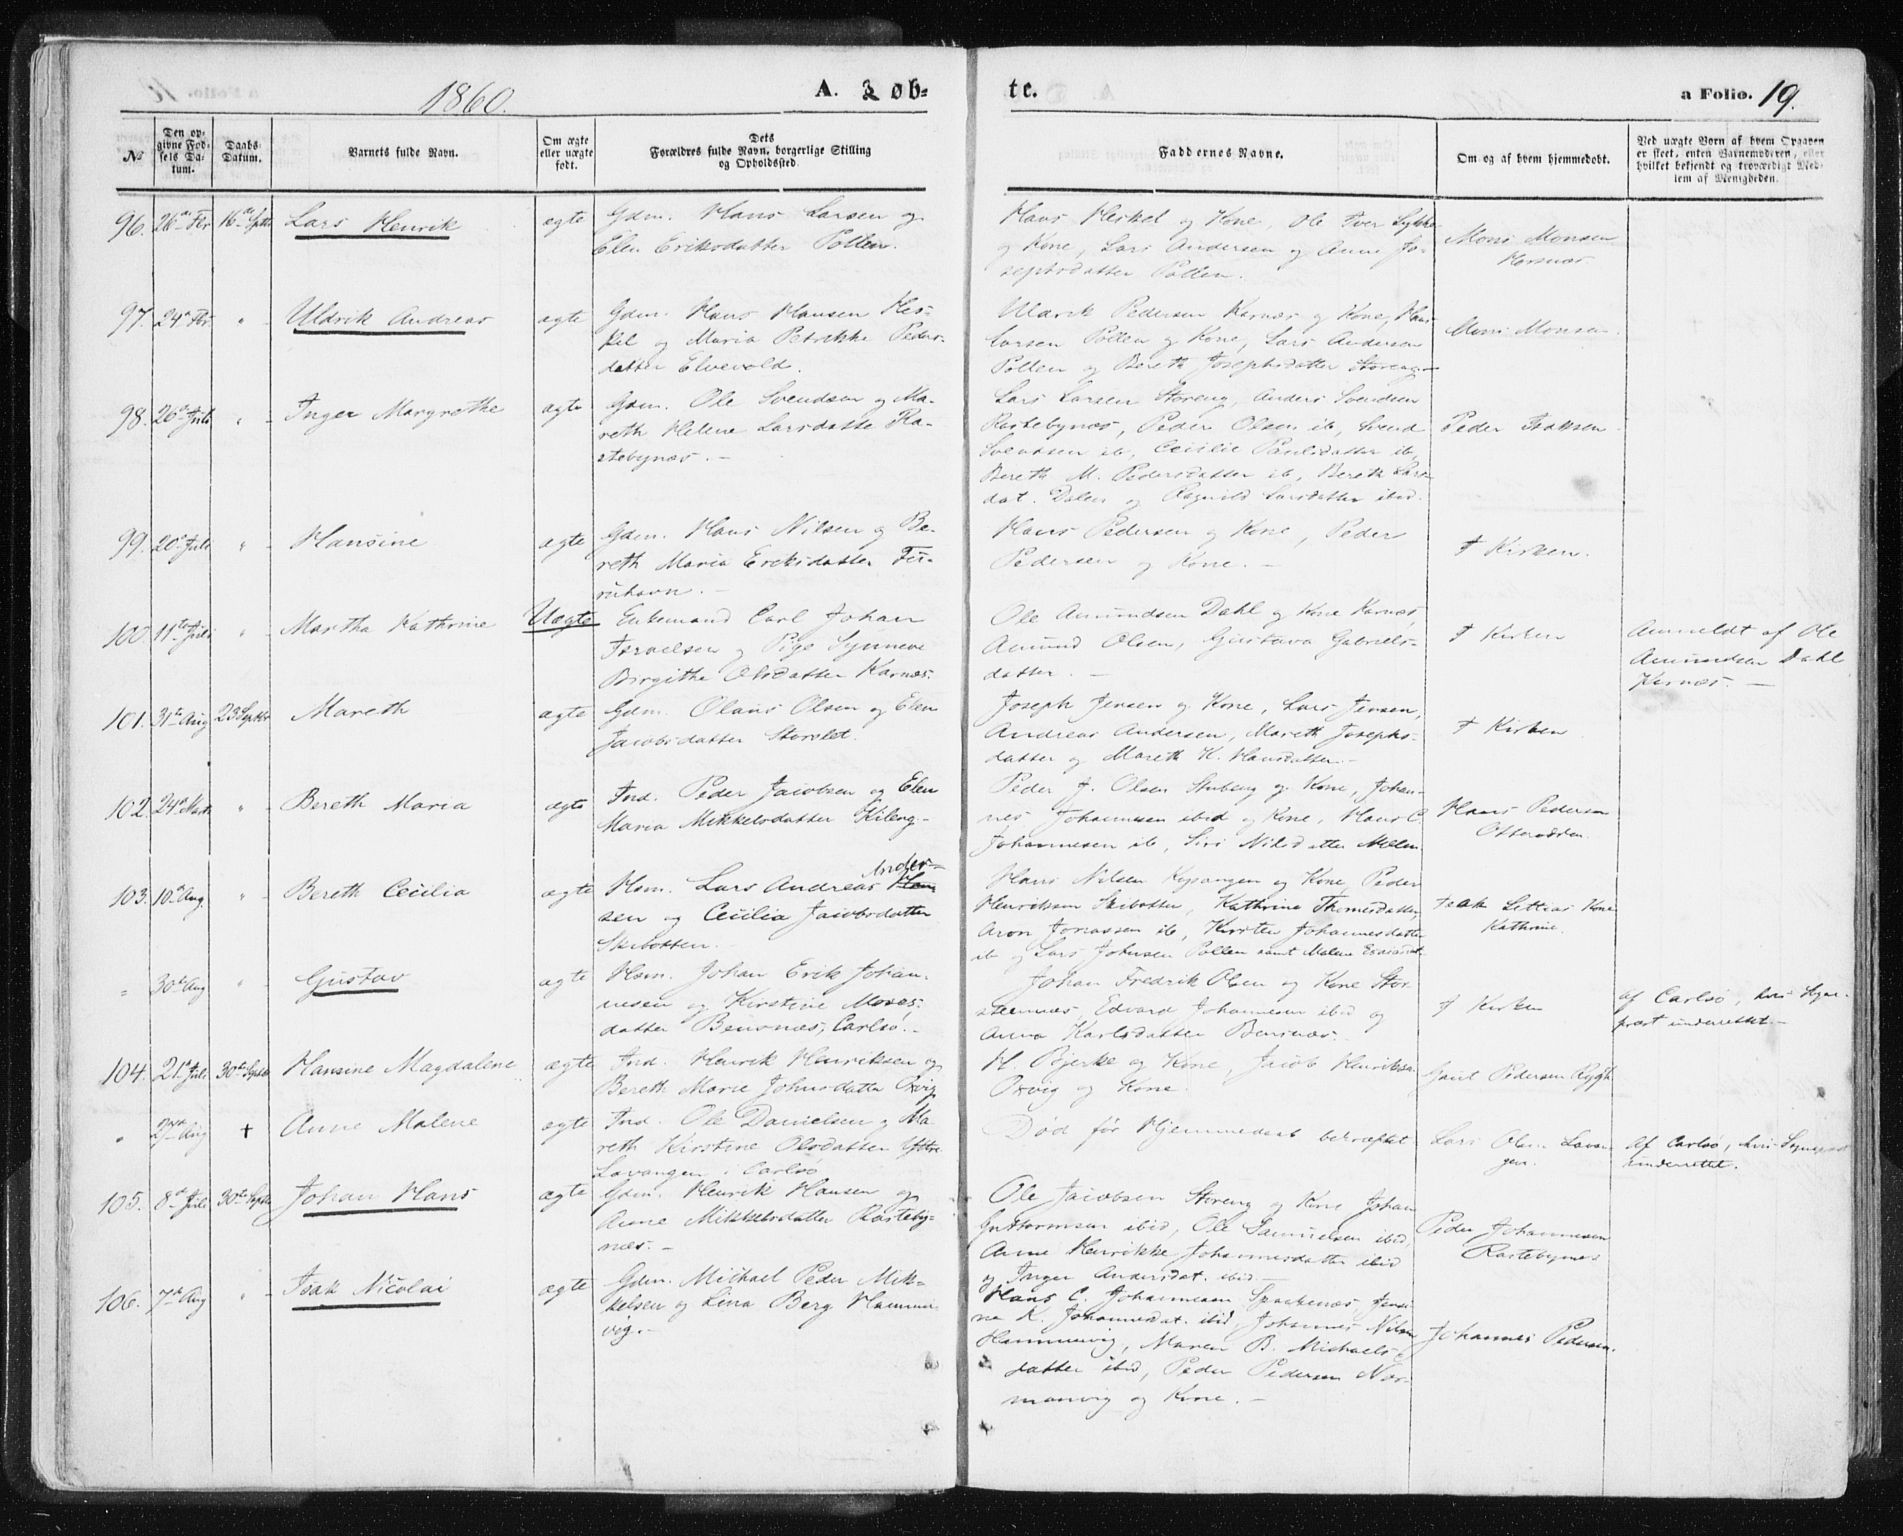 1860.
A. Døb-
te.
a Folio. 19.
№
Den op-
givne Fød-
sels Da-
tum.
Daabs-
Datum.
Barnets fulde Navn.
Om ægte
eller uægte
født.
Dets
Forældres fulde Navn, borgerlige Stilling
og Opholdssted.
Faddernes Navne.
Om og af hvem hjemmedøbt.
Ved uægte Børn af hvem Opgaven
er skeet, enten Barnemoderen, eller
hvilket bekjendt og troværdigt Med-
lem af Menigheden.
96. 26de 16de Septbr Lars Henrik ægte
Gdm. Hans Larsen og
Elen Eriksdatter Pollen.
Hans Heskel og Kone, Ole Iver Lykke
og Kone, Lars Andersen og Anne Jo-
sephsdatter Pollen.
Mons Monsen
Hersnæs.
97. 24de " - Uldrik Andreas ægte
Gdm. Hans Hansen Hes-
kel og Maria Petrikke Peders-
datter Elvevold.
Uldrik Pedersen Karnæs og Kone, Hans
Larsen Pollen og Kone, Lars Andersen
Pollen og Bereth Josephsdatter Storeng.-
Mons Monsen
98. 26de Juli " - Inger Margrethe ægte
Gdm. Ole Svendsen og Ma-
reth Helene Larsdatter Ra-
stebynæs. -
Lars Larsen Storeng, Anders Svendsen
Rastebynæs, Peder Olsen ib, Svend
Svendsen ib, Cecilie Paulsdatter ib,
Bereth M. Pedersdatter ib, Bereth Lars-
dat. Dalen og Ragnild Larsdatter ibid.
Peder Isaksen.
99. 20de Juli " - Hansine ægte
Gdm. Hans Nilsen og Be-
reth Maria Eriksdatter Fu-
ruhavn. -
Hans Pedersen og Kone, Peder
Pedersen og Kone. -
I Kirken.
100. 11te Juli " - Martha Kathrine Uægte
Enkemand Carl Johan
Israelsen og Pige Synneve
Birgithe Olsdatter Karnæs.
Ole Amundsen Dahl og Kone Karnæs
Amund Olsen, Gustava Gabriels-
datter. -
I Kirken
Anmeldt af Ole
Amundsen Dahl
Karnæs. -
101. 31te Aug 23 Septbr Mareth ægte
Gdm. Olaus Olsen og Elen
Jacobsdatter Storslet.
Joseph Jensen og Kone, Lars Jensen,
Andreas Andersen, Mareth Josephs-
datter og Mareth K. Hansdatter. -
I Kirken
102. 24de " - Bereth Maria ægte
Ind. Peder Jacobsen og Elen
Maria Mikkelsdatter Kileng-
Peder J. Olsen Stubeng og Kone, Johan-
nes Johannesen ibid og Kone, Hans C.
Johannesen ib, Siri Nilsdatter Melen
Hans Pedersen
103. 10de Aug. " - Bereth Cecilia ægte
Hsm. Lars Andreas Ander-
sen og Cecilia Jacobsdatter
Skibotten. -
Hans Nilsen og Kone, Peder
Henriksen Skibotten, Kathrine Thomasdatter,
Aron Jonassen ib, Kirsten Johannesdatter
ib og Lars Johnsen Pollen samt Malene
Kone
Kathrine.
" 30te Aug " - Gustav ægte
Hsm. Johan Erik Johan-
nesen og Kirstine Moses-
datter Bensnæs, Carlsø. -
Johan Fredrik Olsen og Kone Stor-
steennæs, Edvard Johannesen ibid og
Anna Karlsdatter Bensnæs.
I Kirken
Af Carlsø, hvis Sogne-
præst underrettet. -
104. 21de Juli 30te Septbr Hansine Magdalene ægte
Ind. Henrik Henriksen og
Bereth Marie Johnsdatter Oxvig
H. Bjerke og Kone, Jacob Henriksen
Oxvig og Kone.
Pedersen
" Aug + Anne Malene ægte
Ind. Ole Danielsen og Ma-
reth Kirstine Olsdatter Yttre
Lavangen i Carlsø
Død før Hjemmedaab bekræftet
Lars Olsen Lavan-
gen.
Af Carlsø, hvis Sognepræst
underrettet.
105. 8de Juli 30te Septbr Johan Hans ægte
Gdm. Henrik Hansen og
Anne Mikkelsdatter Rasteby-
næs. -
Ole Jacobsen Storeng og Kone Johan
Guttormsen ibid, Ole Samuelsen ibid,
Anne Henrikke Johannesdatter ibid
og Inger Andersdat. ibid. -
Peder Johannesen
Rastebynæs
106. 7de Aug " - Isak Nicolai ægte
Gdm. Michael Peder Mik-
kelsen og Lina Berg Hamne-
vig. -
Hans C. Johannesen Spaakenæs, Jensi-
ne K. Johannesdat. ibid, Johannes Nilsen
Hamnevig, Maren B. Michaels-
datter ibid, Peder Pedersen Nor-
manvig og Kone. -
Johannes Pedersen.